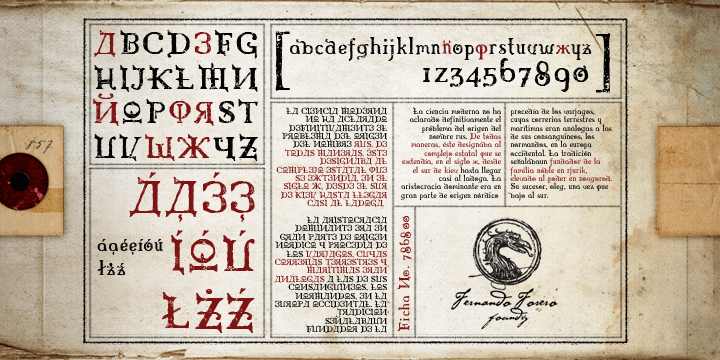 ДBCDЗFG
HIJKŁMИ
ЙOPФЯST
UVШЖЧZ
abcdefghijklmnñopфrstuvwжyz
1234567890
ÁĄÉĘ
ÍÓÚ
áąéęíóú
łżź
ŁŻŹ
LA CIENCIA MODERNA
NO HA ACLARADO
DEFINITIVAMENTE EL
PROBLEMA DEL ORIGEN
DEL NOMBRE RUS. DE
TODAS MANERAS, ESTE
DESIGNABA AL
COMPLEJO ESTATAL QUE
SE EXTENDIA, EN EL
SIGLO X, DESDE EL SUR
DE KIEV HASTA LLEGAR
CASI AL LADOGA.
LA ARISTOCRACIA
DOMINANTE ERA EN
GRAN PARTE DE ORIGEN
NORDICO Y PROCEDIA DE
LOS VARJAGOS, CUYAS
CORRERIAS TERRESTRES Y
MARITIMAS ERAN
ANALOGAS A LAS DE SUS
CONSANGUINEOS, LOS
NORMANDOS, EN LA
EUROPA OCCIDENTAL. LA
TRADICION
SEÑALABAN
FUNDADOR DE LA
La ciencia moderna no ha
aclarado definitivamente el
problema del origen del
nombre rus. De todas
maneras, éste designaba al
complejo estatal que se
extendia, en el siglo x, desde
el sur de kiev hasta llegar
casi al ladoga. La
aristocracia dominante era en
gran parte de origen nórdico
precedia de los varjagos,
cuyas correrias terrestres y
maritimas eran análogas a las
de sus consanguineos, los
normandos, en la europa
occidental. La tradición
señalaban fundador de la
familia noble en rjurik,
elevado al poder en novgorod.
Su sucesor, oleg, una vez que
bajo al sur.
Ficha No. 786800
Fernando Forero
foundry
857.